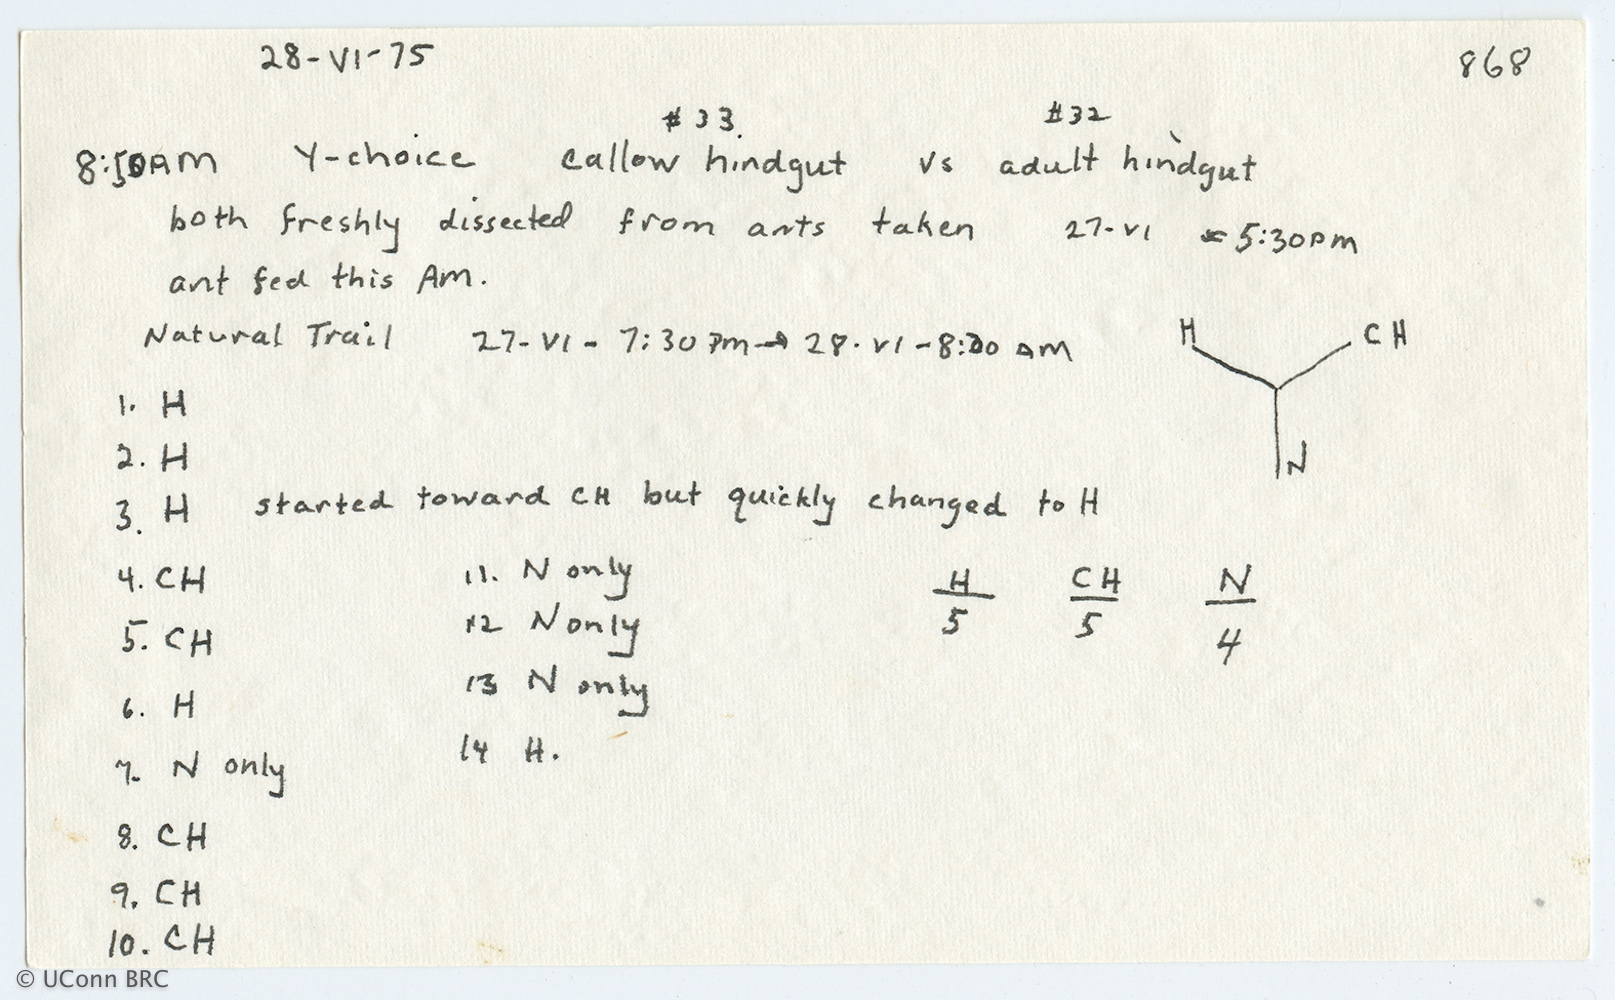 28-VI-75
868
#33. #32
8:50AM Y-choice callow hindgut vs adult hindgut
both freshly dissected from ants taken 27-VI 5:30pm
ant fed this AM.
Natural Trail 27-VI- 7:30 Pm→ 28-VI-8:00 AM
H CH
N
1. H
2. H
3. H started toward CH but quickly changed to H
4. CH
5. CH
6. H
7. N only
8. CH
9. CH
10. CH
11. N only
12 N only
13 N only
14 H.
H CH N
5 5 4
© UConn BRC